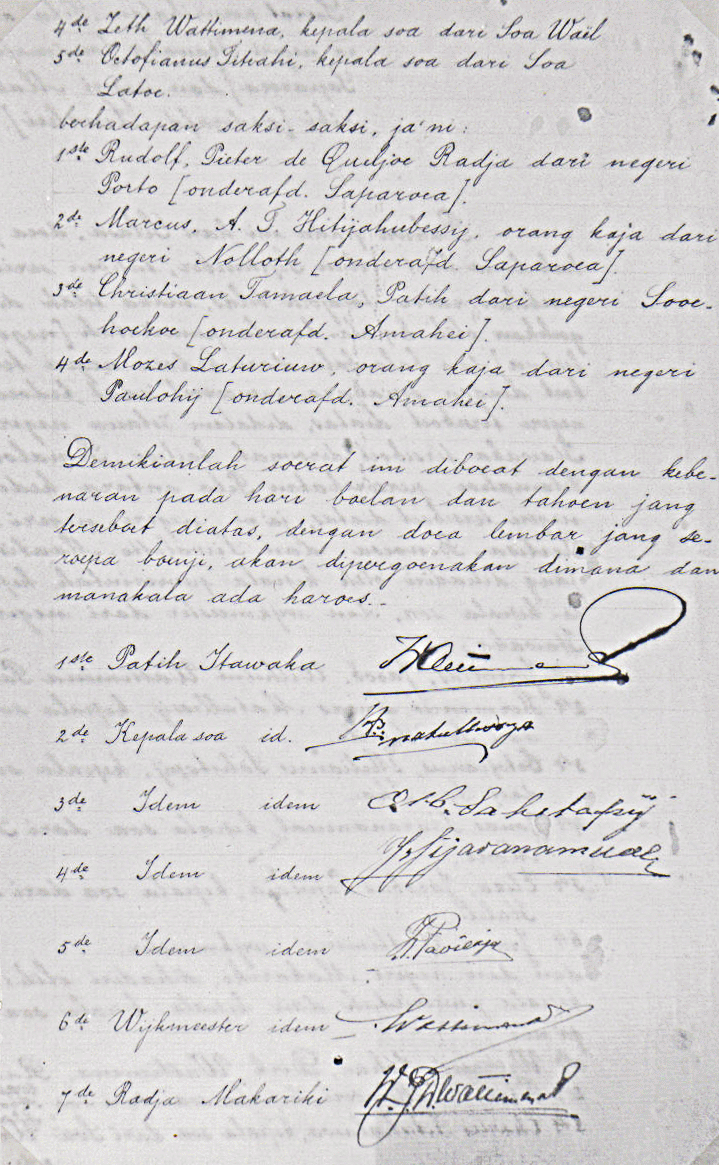 4de Zeth Wattimena, kepala soa dari Soa Waël
5de Octofianus Titahi, kepala soa dari Soa
Latoe.
berhadapan saksi-saksi, ja'ni:
1ste Rudolf, Pieter de Queljoe Radja dari negeri
Porto [onderafd. Saparoea].
2de Marcus, A. T. Hitijahubessy, orang kaja dari
negeri Nolloth [onderafd. Saparoea].
3de Christiaan Tamaela, Patih dari negeri Sooe-
hoekoe [onderafd. Amahei].
4de Mozes Laturiuw, orang kaja dari negeri
Paulohij [onderafd. Amahei].
Demikianlah soerat ini diboeat dengan kebe-
naran pada hari boelan dan tahoen jang
terseboet diatas, dengan doea lembar jang se-
roepa bouji, akan dipergoenakan dimana dan
manakala ada haroes.-
1ste Patih Itawaka
2de Kepala soa id.
3de Idem idem Sahetapij
4de Idem idem Sijaranamual
5de Idem idem
6de Wijkmeester idem Wattimena
7de Radja Makariki Wattimena